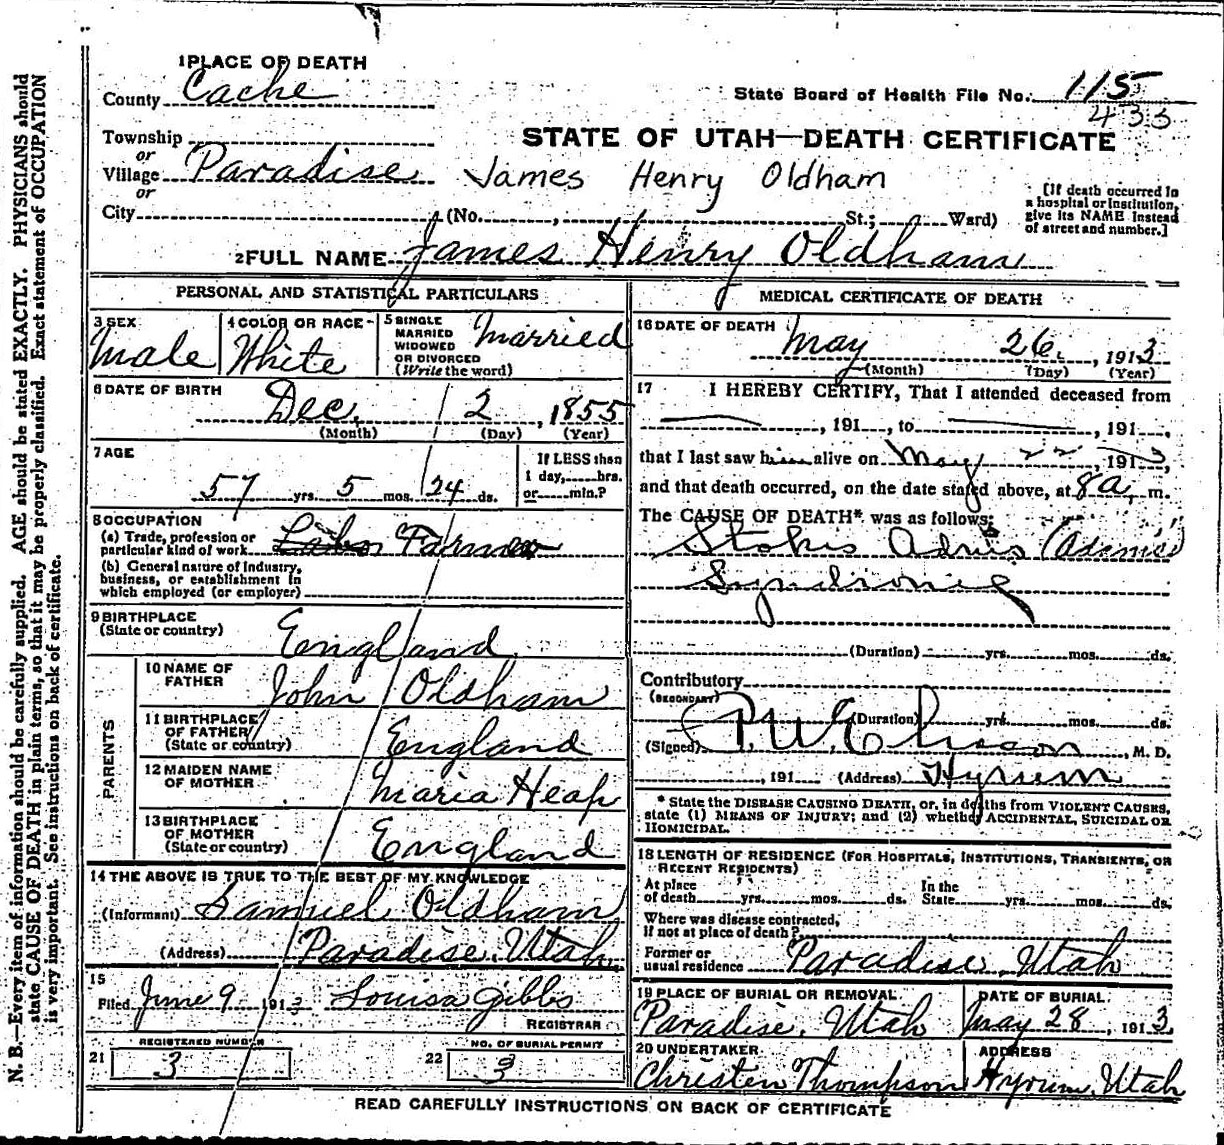 1 PLACE OF DEATH
County Cache
State Board of Health File No. 115
433
Township
or
Village Paradise
or
City (No. , St.; Ward)
STATE OF UTAH—DEATH CERTIFICATE
James Henry Oldham
[If death occurred in
a hospital or institution,
give its NAME instead
of street and number.]
2 FULL NAME James Henry Oldham
PERSONAL AND STATISTICAL PARTICULARS
3 SEX
Male
4 COLOR OR RACE
White
5 SINGLE
MARRIED
WIDOWED
OR DIVORCED
(Write the word)
Married
6 DATE OF BIRTH
Dec. 2, 1855
(Month) (Day) (Year)
7 AGE
57 yrs. 5 mos. 24 ds.
If LESS than
1 day, hrs.
or min.?
8 OCCUPATION
(a) Trade, profession or
particular kind of work Labor Farmer
(b) General nature of industry,
business, or establishment in
which employed (or employer)
9 BIRTHPLACE
(State or country)
England
PARENTS
10 NAME OF
FATHER
John Oldham
11 BIRTHPLACE
OF FATHER
(State or country)
England
12 MAIDEN NAME
OF MOTHER
Maria Heap
13 BIRTHPLACE
OF MOTHER
(State or country)
England
14 THE ABOVE IS TRUE TO THE BEST OF MY KNOWLEDGE
(Informant) Samuel Oldham
(Address) Paradise, Utah
15
Filed June 9 1913 Louisa Gibbs
REGISTRAR
21 REGISTERED NUMBER
3
22 NO. OF BURIAL PERMIT
3
MEDICAL CERTIFICATE OF DEATH
16 DATE OF DEATH
May 26, 1913
(Month) (Day) (Year)
17 I HEREBY CERTIFY, That I attended deceased from
, 191 , to , 191 ,
that I last saw him alive on May 22, 1913,
and that death occurred, on the date stated above, at 8 a. m.
The CAUSE OF DEATH* was as follows:
Stokes (Adams)
(Duration) yrs. mos. ds.
Contributory
(SECONDARY)
(Duration) yrs. mos. ds.
(Signed) , M. D.
, 191 (Address) Hyrum
* State the DISEASE CAUSING DEATH, or, in deaths from VIOLENT CAUSES,
state (1) MEANS OF INJURY; and (2) whether ACCIDENTAL, SUICIDAL OR
HOMICIDAL.
18 LENGTH OF RESIDENCE (FOR HOSPITALS, INSTITUTIONS, TRANSIENTS, OR
RECENT RESIDENTS)
At place
of death yrs. mos. ds.
In the
State yrs. mos. ds.
Where was disease contracted,
if not at place of death?
Former or
usual residence Paradise, Utah
19 PLACE OF BURIAL OR REMOVAL
Paradise, Utah
DATE OF BURIAL
May 28, 1913
20 UNDERTAKER
Christen Thompson
ADDRESS
Hyrum, Utah
READ CAREFULLY INSTRUCTIONS ON BACK OF CERTIFICATE
N. B.—Every item of information should be carefully supplied. AGE should be stated EXACTLY. PHYSICIANS should
state CAUSE OF DEATH in plain terms, so that it may be properly classified. Exact statement of OCCUPATION
is very important. See instructions on back of certificate.